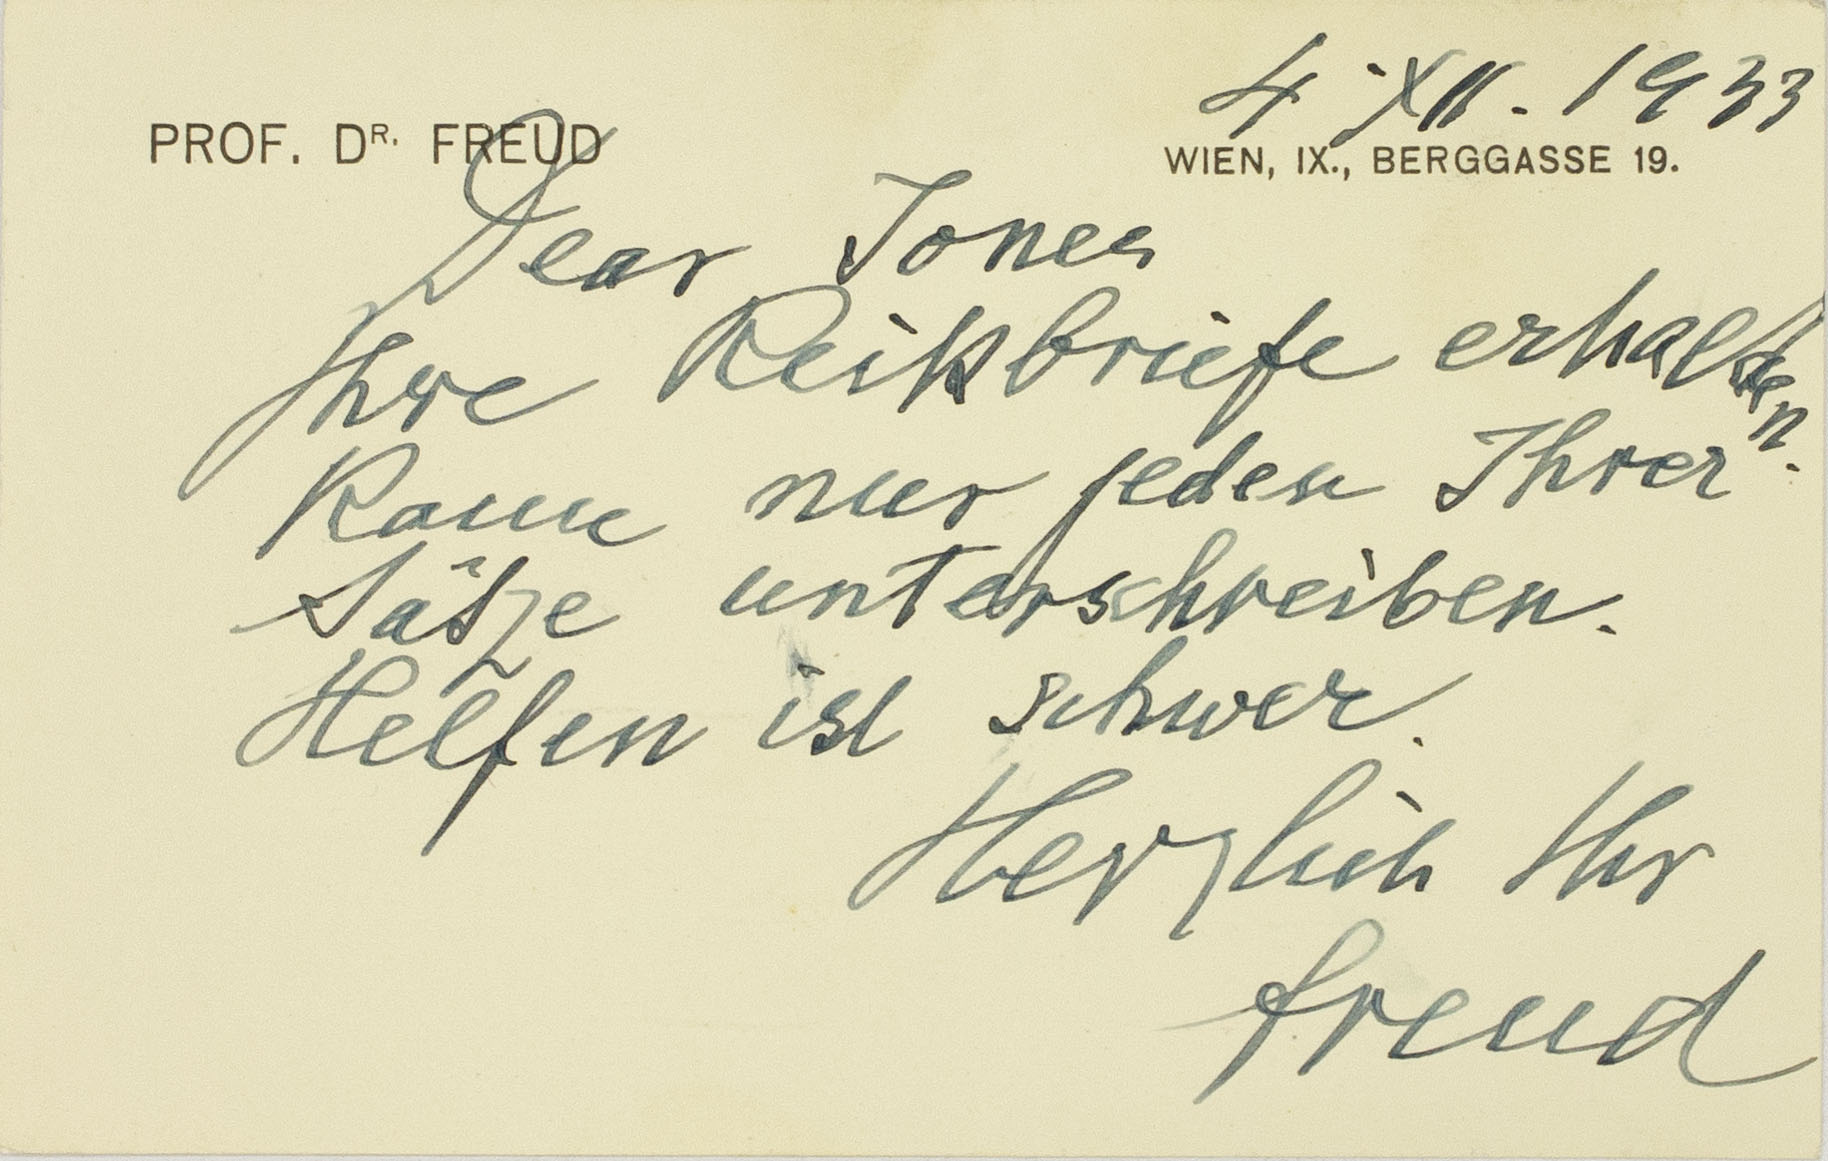 4 XII. 1933
PROF. DR. FREUD
WIEN, IX., BERGGASSE 19.
Dear Jones
Ihre Reikbriefe erhalten.
Kann nur jeden Ihrer
Sätze unterschreiben.
Helfen ist schwer.
Herzlich Ihr
Freud